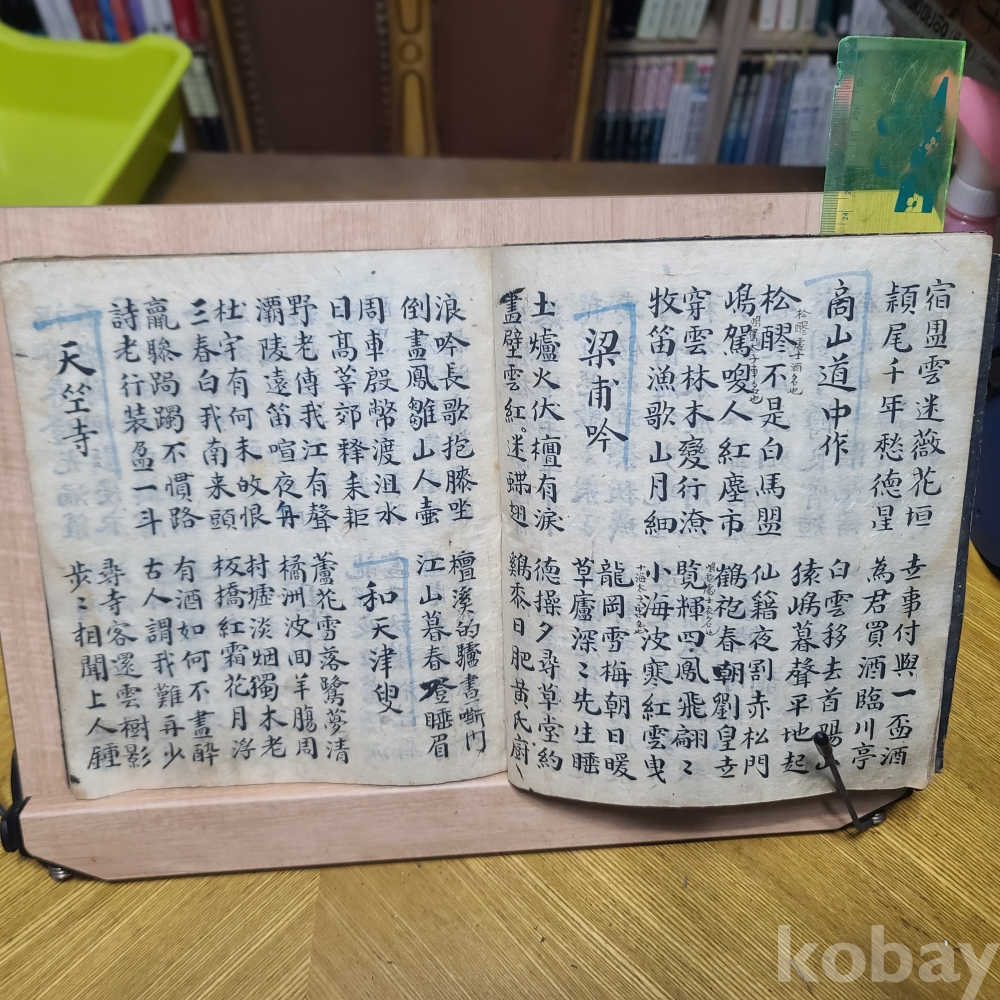 宿盟雲迷薇花垣
穎尾千年愁德星
商山道中作
松醪不是白馬盟
松醪處士酒名也
嶋駕嗖人紅塵市
穿雲林木變行潦
牧笛漁歌山月細
梁甫吟
土爐火伏檀有淚
畫壁雲紅迷蝶翅
世事付與一盃酒
為君買酒臨川亭
白雲移去首陽山
猿嶋暮聲平地起
仙籍夜割赤松門
鶴袍春朝劉皇世
覽輝四鳳飛翩〻
小海波寒紅雲曳
龍岡雪梅朝日暖
草廬深〻先生睡
德操夕尋草堂約
鷄黍日肥黃氏厨
浪吟長歌抱膝坐
倒盡鳳雛山人壺
周車殷幣渡沮水
日高莘郊釋耒耟
野老傳我江有聲
灞陵遠笛喧夜舟
杜宇有何未攸恨
三春白我南来頭
驘驂跼躅不慣路
詩老行裝盈一斗
天竺寺
檀溪的驢晝嘶門
江山暮春登睡眉
和天津叟
蘆花雪落鷺夢清
橘洲波間羊膓周
村墟淡烟獨木老
板橋紅霜花月浮
有酒如何不盡醉
古人謂我難再少
尋寺客還雲樹影
步〻相聞上人鍾
kobay